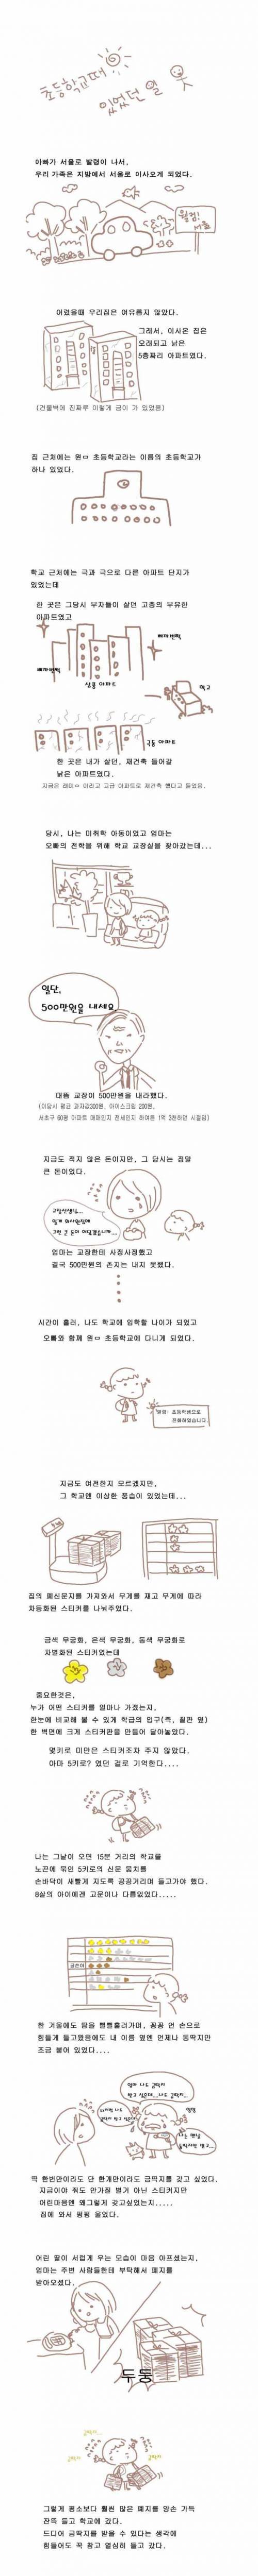 초등학교때
있었던 일
아빠가 서울로 발령이 나서,
우리 가족은 지방에서 서울로 이사오게 되었다.
웰컴!
서울
어렸을때 우리집은 여유롭지 않았다.
그래서, 이사온 집은
오래되고 낡은
5층짜리 아파트였다.
(건물벽에 진짜루 이렇게 금이 가 있었음)
집 근처에는 원ㅁ 초등학교라는 이름의 초등학교가
하나 있었다.
학교 근처에는 극과 극으로 다른 아파트 단지가
있었는데
한 곳은 그당시 부자들이 살던 고층의 부유한
아파트였고
삐까번쩍
삐까번쩍
학교
한 곳은 내가 살던, 재건축 들어갈
낡은 아파트였다.
지금은 래미ㅇ 이라고 고급 아파트로 재건축 됐다고 들었음.
당시, 나는 미취학 아동이었고 엄마는
오빠의 전학을 위해 학교 교장실을 찾아갔는데...
일단,
500만원을 내세요
대뜸 교장이 500만원을 내라했다.
(이당시 평균 과자값300원, 아이스크림 200원,
서초구 60평 아파트 매매인지 전세인지 하여튼 1억 3천하던 시절임)
지금도 적지 않은 돈이지만, 그 당시는 정말
큰 돈이였다.
교장선생님...
엄마는 교장한테 사정사정했고
결국 500만원의 촌지는 내지 못했다.
시간이 흘러, 나도 학교에 입학할 나이가 되었고
오빠와 함께 원ㅁ 초등학교에 다니게 되었다.
초등학생으로
진화하였습니다
지금도 여전한지 모르겠지만,
그 학교엔 이상한 풍습이 있었는데...
집의 폐신문지를 가져와서 무게를 재고 무게에 따라
차등화된 스티커를 나눠주었다.
금색 무궁화, 은색 무궁화, 동색 무궁화로
차별화된 스티커였는데
중요한것은,
누가 어떤 스티커를 얼마나 가졌는지,
한눈에 비교해 볼 수 있게 학급의 입구(즉, 칠판 옆)
한 벽면에 크게 스티커판을 만들어 달아놓았다.
몇키로 미만은 스티커조차 주지 않았다.
아마 5키로? 였던 걸로 기억한다....
나는 그날이 오면 15분 거리의 학교를
노끈에 묶인 5키로의 신문 뭉치를
손바닥이 새빨게 지도록 낑낑거리며 들고가야 했다.
8살의 아이에겐 고문이나 다름없었다.....
글쓴이
한 겨울에도 땀을 뻘뻘흘려가며, 꽁꽁 언 손으로
힘들게 들고왔음에도 내 이름 옆엔 언제나 동딱지만
조금 붙어 있었다....
딱 한번만이라도 단 한개만이라도 금딱지를 갖고 싶었다.
지금이야 줘도 안가질 별거 아닌 스티커지만
어린마음엔 왜그렇게 갖고싶었는지.....
집에 와서 펑펑 울었다.
어린 딸이 서럽게 우는 모습이 마음 아프셨는지,
엄마는 주변 사람들한테 부탁해서 폐지를
받아오셨다.
두둥
금딱지...
금딱지
금딱지
그렇게 평소보다 훨씬 많은 폐지를 양손 가득
잔뜩 들고 학교에 갔다.
드디어 금딱지를 받을 수 있다는 생각에
힘들어도 꾹 참고 열심히 들고 갔다.